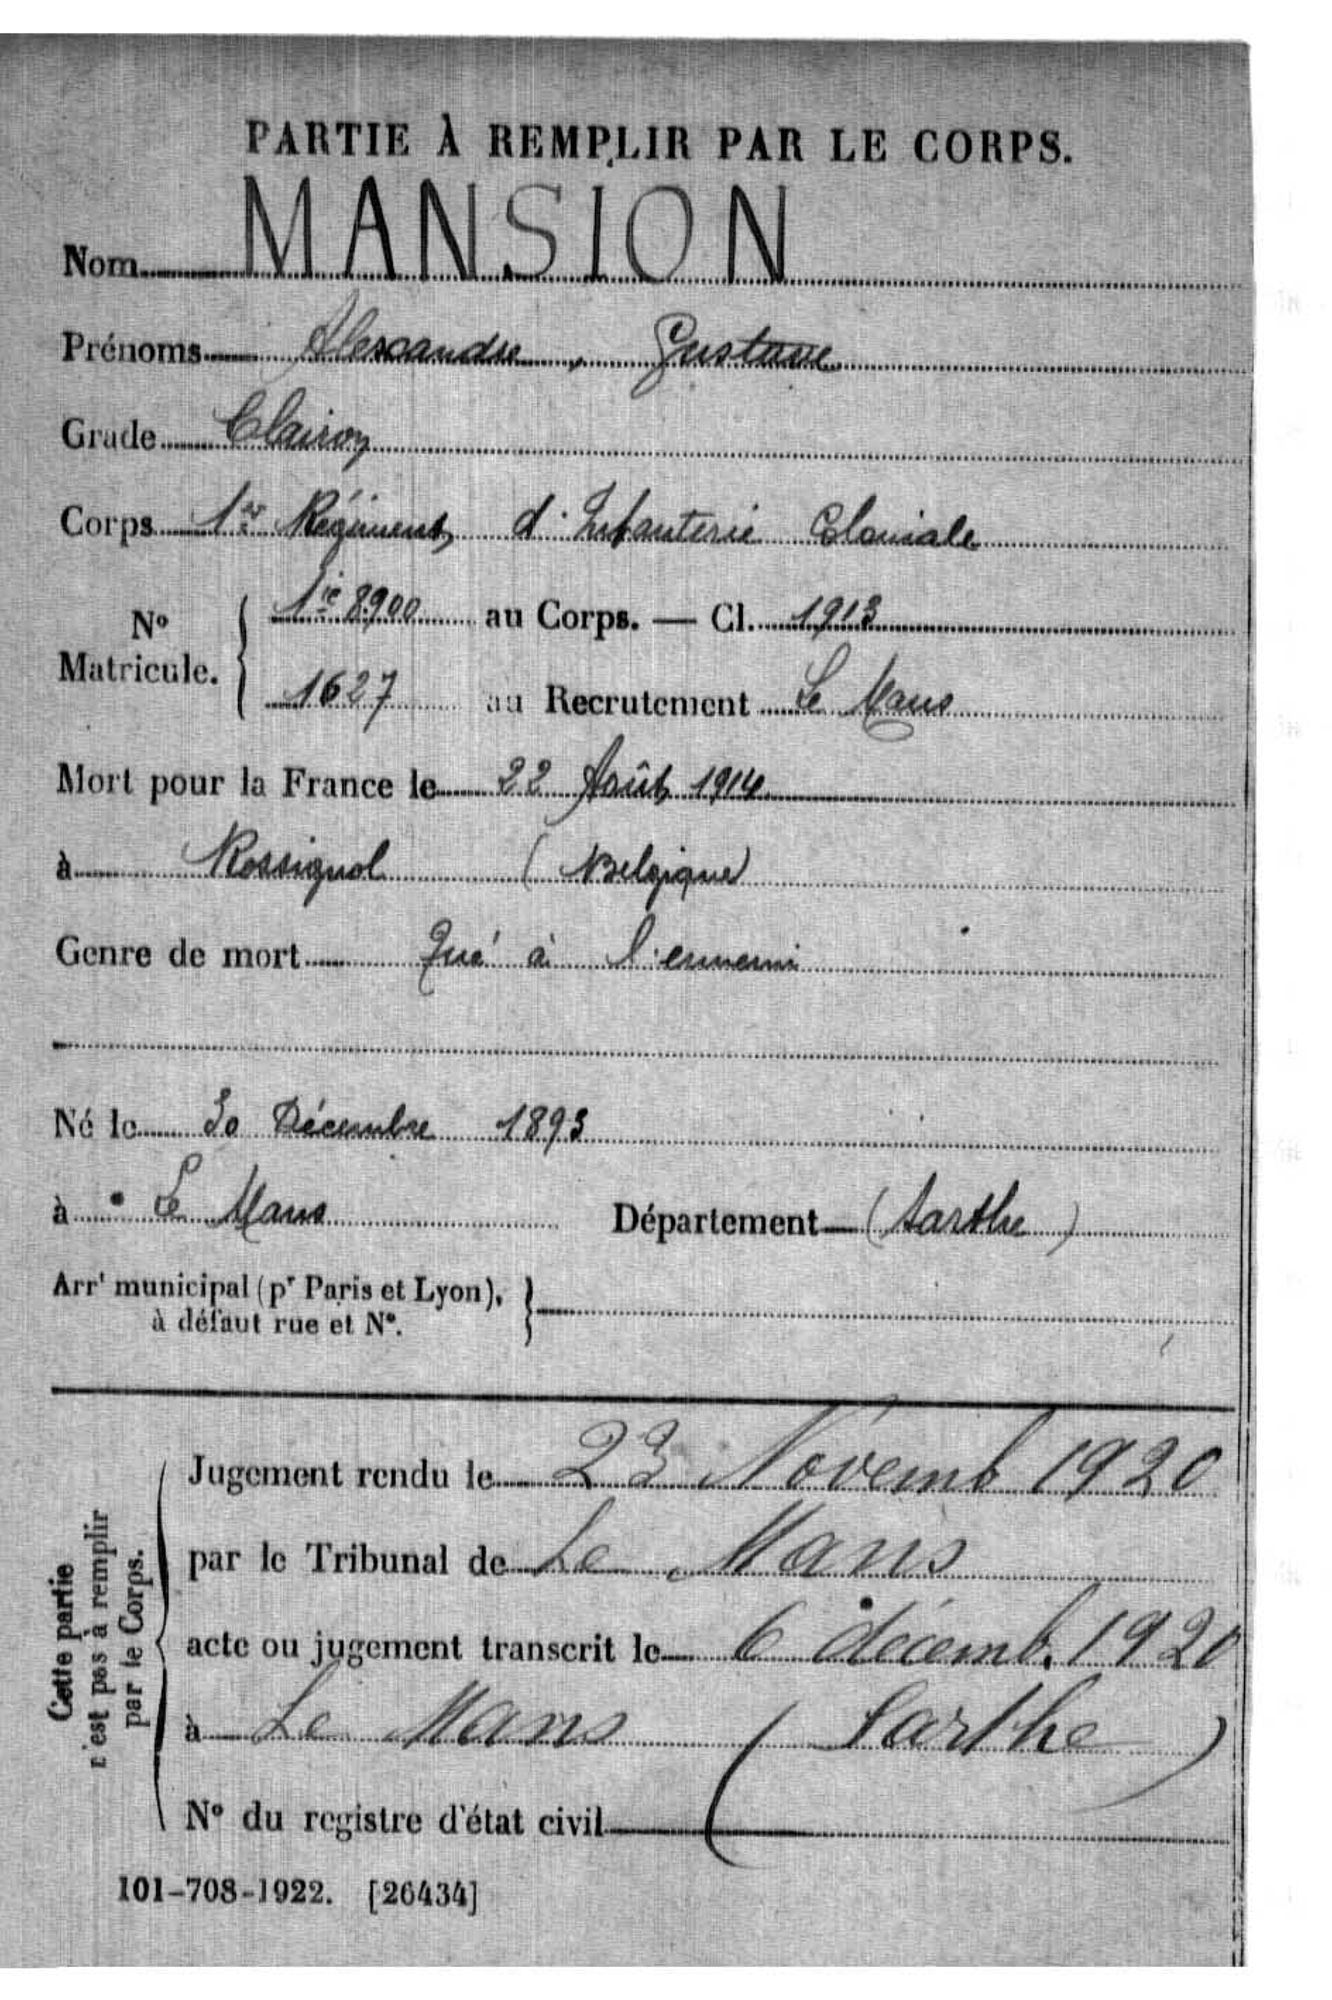 PARTIE À REMPLIR PAR LE CORPS.
Nom MANSION
Prénoms Alexandre, Gustave
Grade Clairon
Corps 1er Régiment d'Infanterie Coloniale
N° Matricule. 1ie 8900 au Corps. — Cl. 1913
1627 au Recrutement Le Mans
Mort pour la France le 22 Août 1914
à Rossignol (Belgique)
Genre de mort Tué à l'ennemi
Né le 30 Décembre 1893
à Le Mans Département (Sarthe)
Arrt municipal (pr Paris et Lyon),
à défaut rue et N°.
Cette partie
n'est pas à remplir
par le Corps.
Jugement rendu le 23 Novemb 1920
par le Tribunal de Le Mans
acte ou jugement transcrit le 6 décemb. 1920
à Le Mans (Sarthe)
N° du registre d'état civil
101-708-1922. [26434]